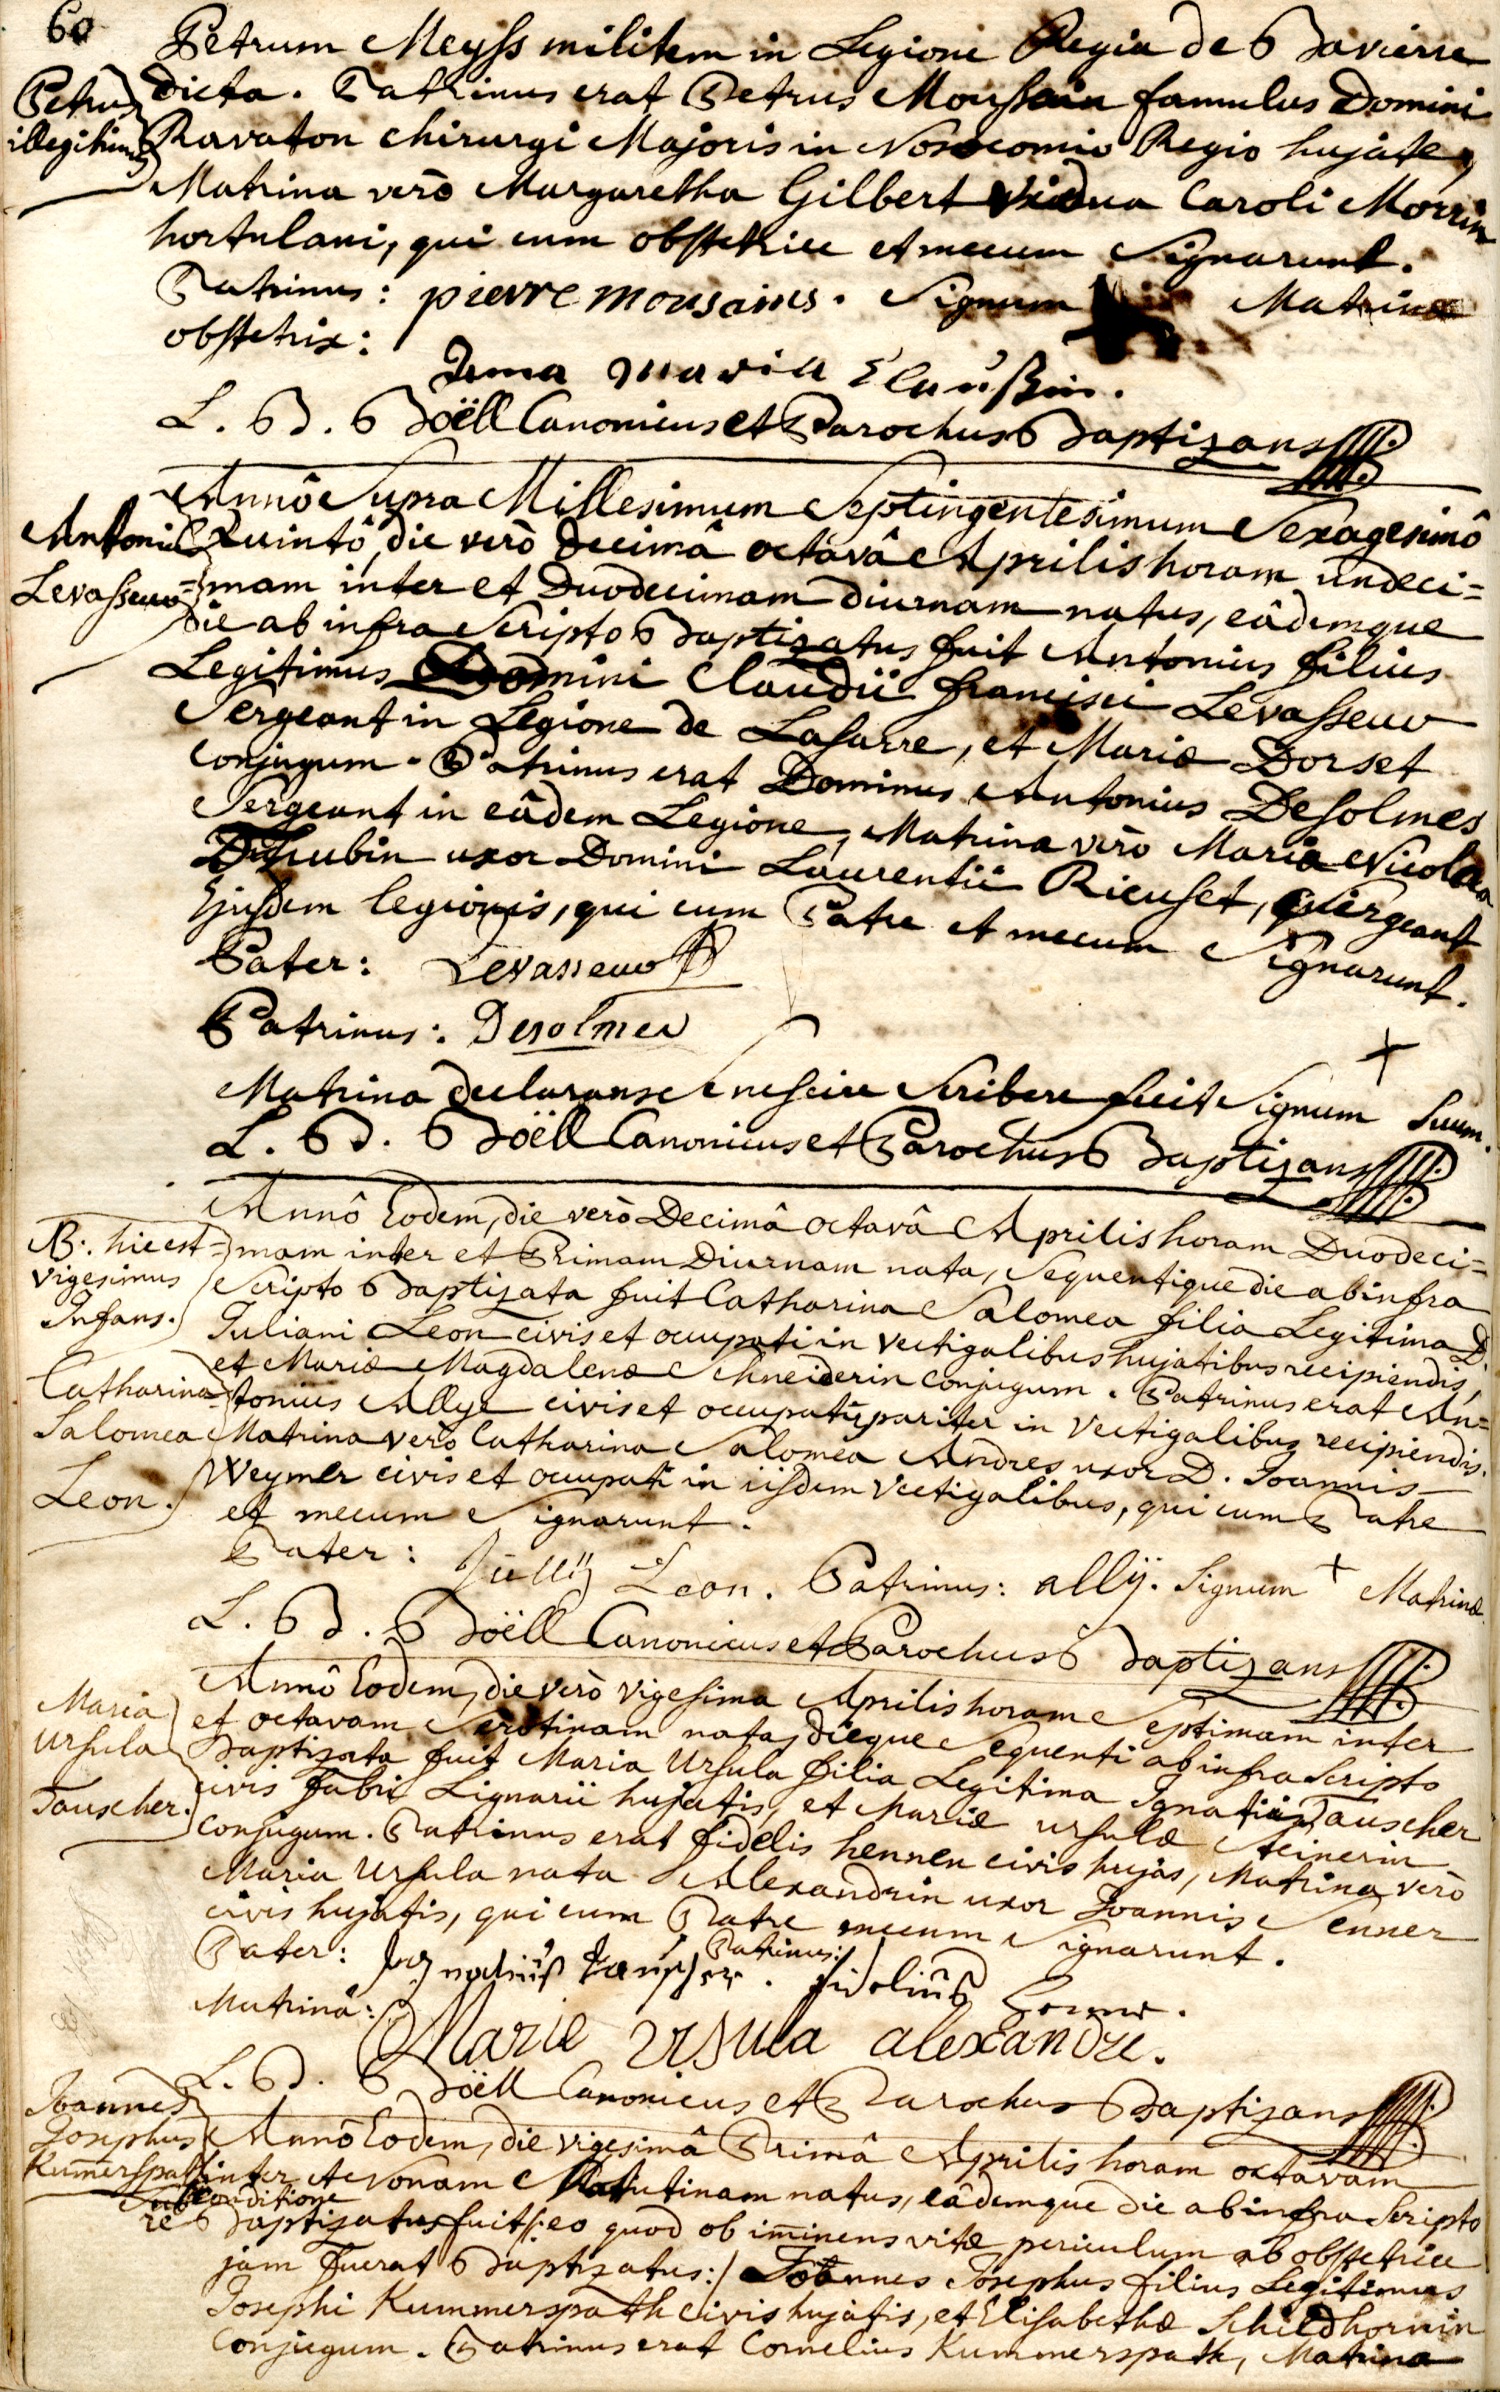 60
Petrum Meyss militem in Legione Regia de Bavierre
Petrus
illegitimus
dicta. Patrinus erat Petrus Moussain famulus Domini
Ravaton Chirurgi Majoris in Nosocomio Regio hujate,
Matrina verò Margaretha Gilbert Vidua Caroli Morrin
hortulani, qui cum obstetrice et mecum Signarunt.
Patrinus: pierre mousains. Signum Matrinæ
obstetrix:
Anna Maria Claussin.
L. B. Böell Canonicus et Parochus Baptizans
Annô Supra Millesimum Septingentesimum Sexagesimô
Antonius
Levasseur
Quintô, die verò Decimâ octavâ Aprilis horam undeci=
=mam inter et Duodecimam diurnam natus, eâdemque
die ab infra Scripto Baptizatus fuit Antonius filius
Legitimus Domini Claudii francisci Levasseur
Sergeant in Legione de Lasarre, et Mariæ Dorset
Conjugum. Patrinus erat Dominus Antonius Desolmes
Sergeant in eâdem Legione, Matrina verò Maria Nicolaa
uxor Domini Laurentii Rieuset, Sergeant
Ejusdem legionis, qui cum Patre et mecum Signarunt.
Pater: Levasseur
Patrinus: Desolmes
Matrina declarans Se nescire Scribere fecit Signum + Suum.
L. B. Böell Canonicus et Parochus Baptizans
Annô Eodem, die verò Decimâ octavâ Aprilis horam Duodeci=
NB. hic est
Vigesimus
Infans.
Catharina
Salomea
Leon.
=mam inter et Primam Diurnam nata, Sequentique die ab infra
Scripto Baptizata fuit Catharina Salomea filia Legitima D.
Juliani Leon civis et occupati in Vectigalibus hujatibus recipiendis,
et Mariæ Magdalenæ Schneiderin conjugum. Patrinus erat An=
=tonius Allye civis et occupatus pariter in Vectigalibus recipiendis.
Matrina verò Catharina Salomea Andres uxor D. Joannis
Weymer civis et occupati in iisdem Vectigalibus, qui cum Patre
et mecum Signarunt.
Pater: Leon. Patrinus: allÿ. Signum + Matrinæ
L. B. Böell Canonicus et Parochus Baptizans
Annô Eodem, die verò vigesima Aprilis horam Septimam inter
Maria
Ursula
Tauscher.
et octavam Serotinam nata, dieque Sequenti ab infra Scripto
Baptizata fuit Maria Ursula filia Legitima Ignatii Tauscher
civis fabri Lignarii hujatis, et Mariæ ursulæ Steinerin
Conjugum. Patrinus erat fidelis hennen civis hujas, Matrina verò
Maria Ursula nata Alexandrin uxor Joannis Senner
civis hujatis, qui cum Patre mecum Signarunt.
Pater: Ignatius Tauscher. Patrinus: fidelius Henne.
Matrina:
Marie Ursula alexandre.
L. B. Böell Canonicus et Parochus Baptizans
Joannes
Josephus
Kumerspath
Annô Eodem, die vigesimâ Primâ Aprilis horam octavam
inter et Nonam Matutinam natus, eâdemque die ab infra Scripto
Sub Conditione
re Baptizatus fuit /: eo quod ob iminens vitæ periculum ab obstetrice
jam fuerat Baptizatus :/ Joannes Josephus filius Legitimus
Josephi Kummerspath civis hujatis, et Elisabethæ Schildhornin
Conjugum. Patrinus erat Cornelius Kummerspath, Matrina